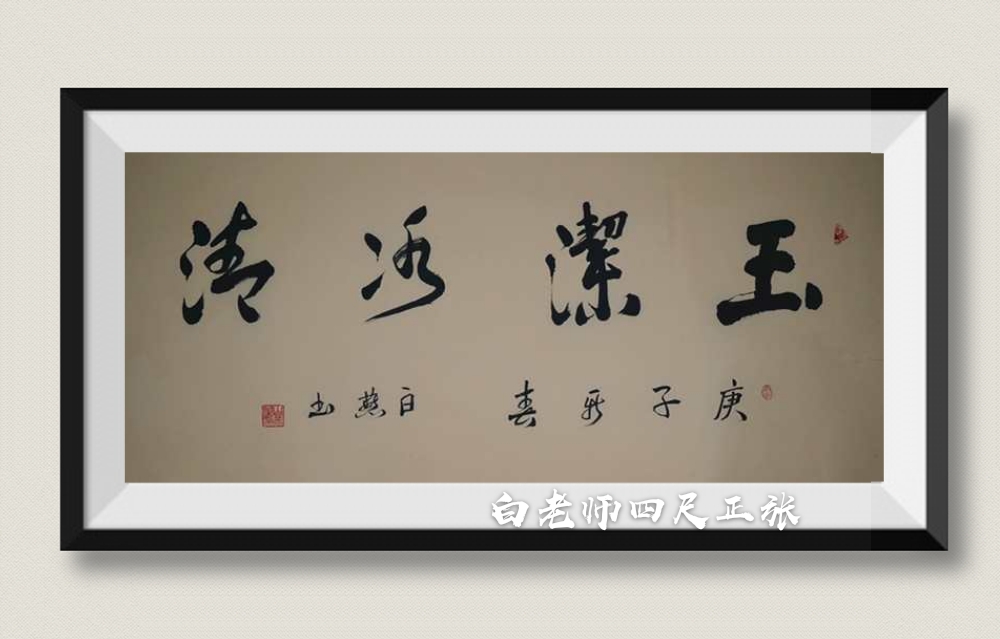 玉潔冰清
庚子新春 白燕书
白老师四尺正张